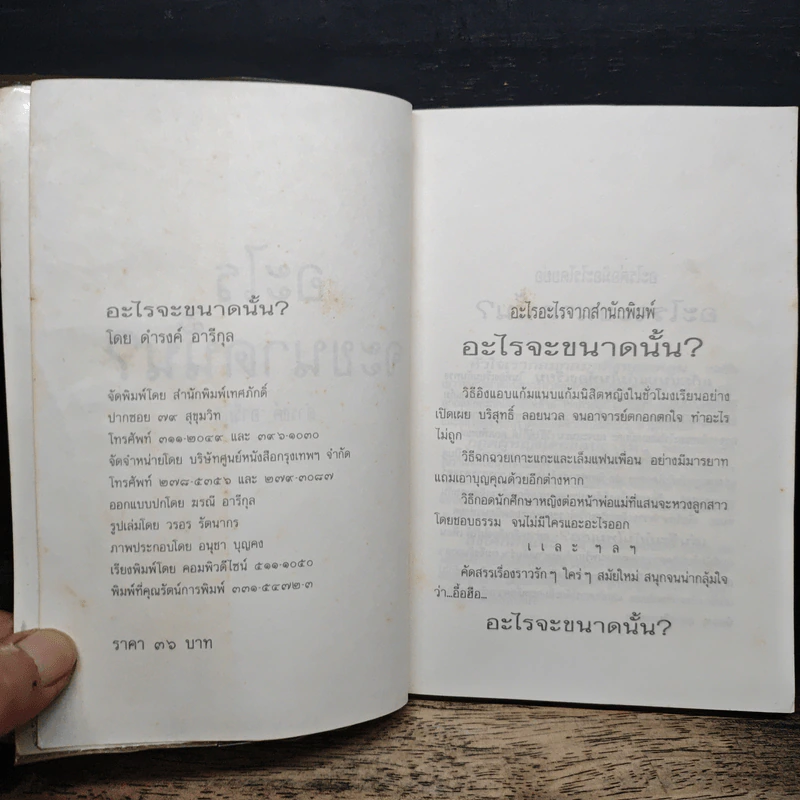 อะไรจะขนาดนั้น?
โดย ดำรงค์ อารีกุล
จัดพิมพ์โดย สำนักพิมพ์เทศภักดิ์
ปากซอย ๗๙ สุขุมวิท
โทรศัพท์ ๓๑๑-๒๐๔๙ และ ๓๙๖-๑๐๓๐
จัดจำหน่ายโดย บริษัทศูนย์หนังสือกรุงเทพฯ จำกัด
โทรศัพท์ ๒๗๘-๕๓๕๖ และ ๒๗๙-๓๐๘๗
ออกแบบปกโดย ฆรณี อารีกุล
รูปเล่มโดย วรอร รัตนากร
ภาพประกอบโดย อนุชา บุญคง
เรียงพิมพ์โดย คอมพิวดีไซน์ ๕๑๑-๑๐๕๐
พิมพ์ที่คุณรัตน์การพิมพ์ ๓๓๑-๕๔๗๒-๓
ราคา ๓๖ บาท
อะไรอะไรจากสำนักพิมพ์
อะไรจะขนาดนั้น?
วิธีอิงแอบแก้มแนบแก้มนิสิตหญิงในชั่วโมงเรียนอย่าง
เปิดเผย บริสุทธิ์ ลอยนวล จนอาจารย์ตกอกตกใจ ทำอะไร
ไม่ถูก
วิธีฉกฉวยเกาะแกะและเล็มแฟนเพื่อน อย่างมีมารยาท
แถมเอาบุญคุณด้วยอีกต่างหาก
วิธีกอดนักศึกษาหญิงต่อหน้าพ่อแม่ที่แสนจะหวงลูกสาว
โดยชอบธรรม จนไม่มีใครแอะอะไรออก
แ ล ะ ฯ ล ฯ
คัดสรรเรื่องราวรักๆ ใคร่ๆ สมัยใหม่ สนุกจนน่ากลุ้มใจ
ว่า...อื้อฮือ...
อะไรจะขนาดนั้น?